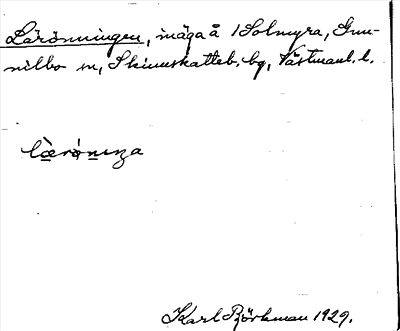 Lärönningen, inäga å 1 Solmyra, Gun-
nilbo sn, Skinnskatteb. bg, Västmanl. l.
Karl Björkman 1929.